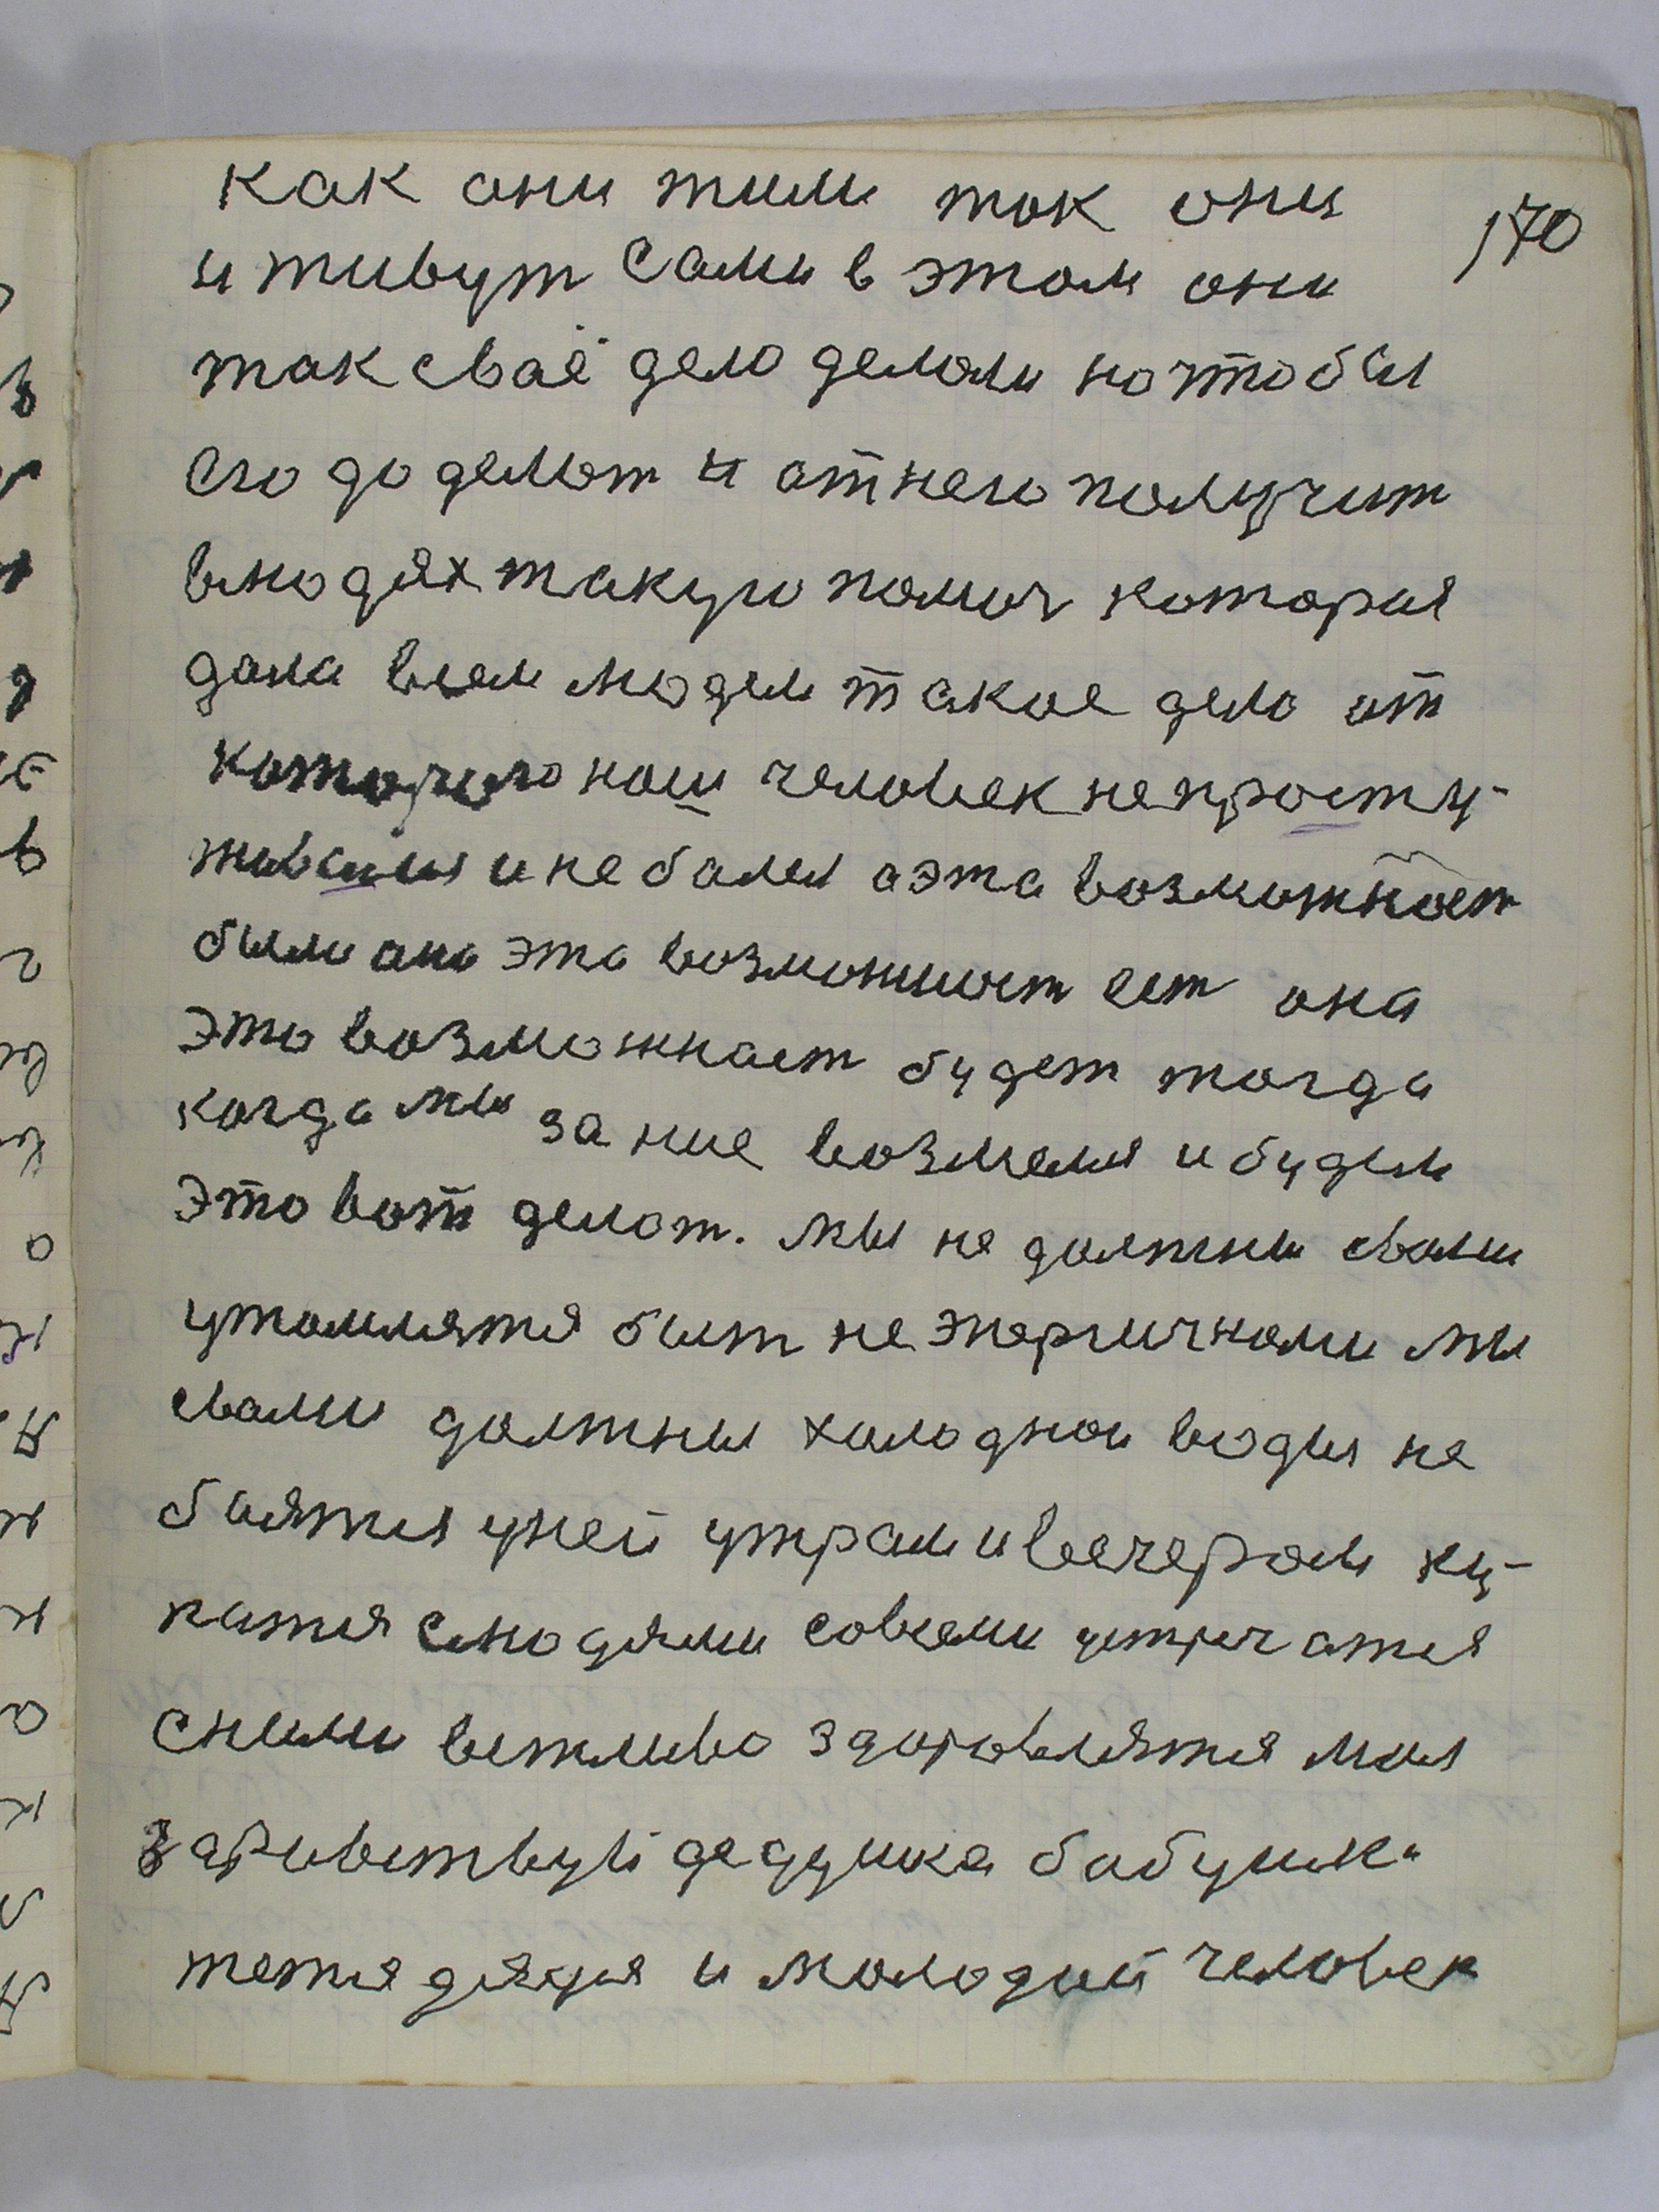 как они жили так они
170
и живут Сами в этом они
так сваё дело делали но чтобы
его до делат и от него получит
в людях такую помоч которая
дала всем людем такое дело от
которого наш человек не просту-
живался и не балел а эта возможност
была она эта возможност ест она
эта возможност будет тогда
когда мы за ние возмемся и будем
это вот делат. мы не должны свами
утомлятся быт не энергичнами мы
свами должны холоднои воды не
баятся уней утрам и вечером ку-
патся слюдями совсеми устричатся
сними вежливо здоровлятся мол
здравствуй дедушка бабушка
тетя дядя и молодый человек